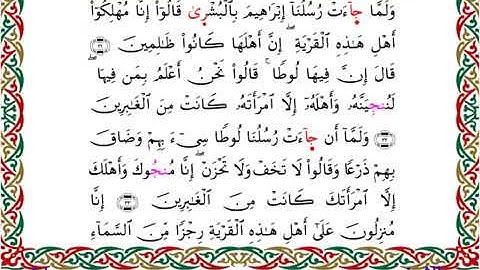 وَلَمَّا جَآءَتْ رُسُلُنَآ إِبْرَٰهِيمَ بِٱلْبُشْرَىٰ قَالُوٓا۟ إِنَّا مُهْلِكُوٓا۟
أَهْلِ هَـٰذِهِ ٱلْقَرْيَةِ ۖ إِنَّ أَهْلَهَا كَانُوا۟ ظَـٰلِمِينَ ﴿٣١﴾
قَالَ إِنَّ فِيهَا لُوطًا ۚ قَالُوا۟ نَحْنُ أَعْلَمُ بِمَن فِيهَا ۖ
لَنُنَجِّيَنَّهُۥ وَأَهْلَهُۥٓ إِلَّا ٱمْرَأَتَهُۥ كَانَتْ مِنَ ٱلْغَـٰبِرِينَ
﴿٣٢﴾ وَلَمَّآ أَن جَآءَتْ رُسُلُنَا لُوطًا سِىٓءَ بِهِمْ وَضَاقَ
بِهِمْ ذَرْعًا وَقَالُوا۟ لَا تَخَفْ وَلَا تَحْزَنْ ۖ إِنَّا مُنَجُّوكَ وَأَهْلَكَ
إِلَّا ٱمْرَأَتَكَ كَانَتْ مِنَ ٱلْغَـٰبِرِينَ ﴿٣٣﴾ إِنَّا
مُنزِلُونَ عَلَىٰٓ أَهْلِ هَـٰذِهِ ٱلْقَرْيَةِ رِجْزًا مِّنَ ٱلسَّمَآءِ